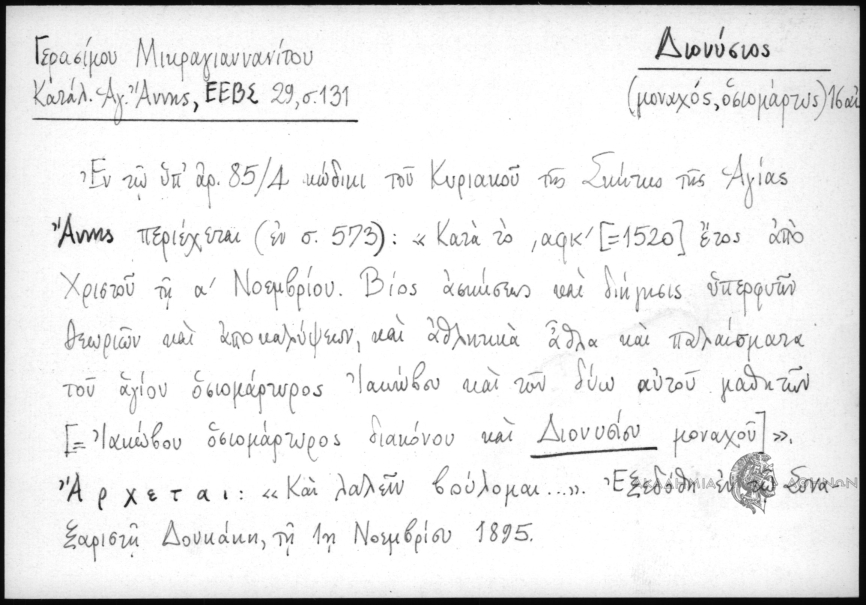 Γερασίμου Μικραγιαννανίτου
Κατάλ. Ἁγ. Ἄννης, ΕΕΒΣ 29, σ. 131
Διονύσιος
(μοναχός, ὁσιομάρτυς) 16 αἰ
Ἐν τῷ ὑπ' ἀρ. 85/4 κώδικι τοῦ Κυριακοῦ τῆς Σκήτης τῆς Ἁγίας
Ἄννης περιέχεται (ἐν σ. 573): «Κατὰ τὸ ͵αφκ' [=1520] ἔτος ἀπὸ
Χριστοῦ τῇ α' Νοεμβρίου. Βίος ἀσκήσεως καὶ διήγησις ὑπερφυῶν
θεωριῶν καὶ ἀποκαλύψεων, καὶ ἀθλητικὰ ἆθλα καὶ παλαίσματα
τοῦ ἁγίου ὁσιομάρτυρος Ἰακώβου καὶ τῶν δύω αὐτοῦ μαθητῶν
[= Ἰακώβου ὁσιομάρτυρος διακόνου καὶ Διονυσίου μοναχοῦ]».
Ἄρχεται: «Καὶ λαλεῖν βούλομαι...». Ἐξεδόθη ἐν τῷ Συνα-
ξαριστῇ Δουκάκη, τῇ 1ῃ Νοεμβρίου 1895.
ΑΚΑΔΗΜΙΑ ΑΘΗΝΩΝ